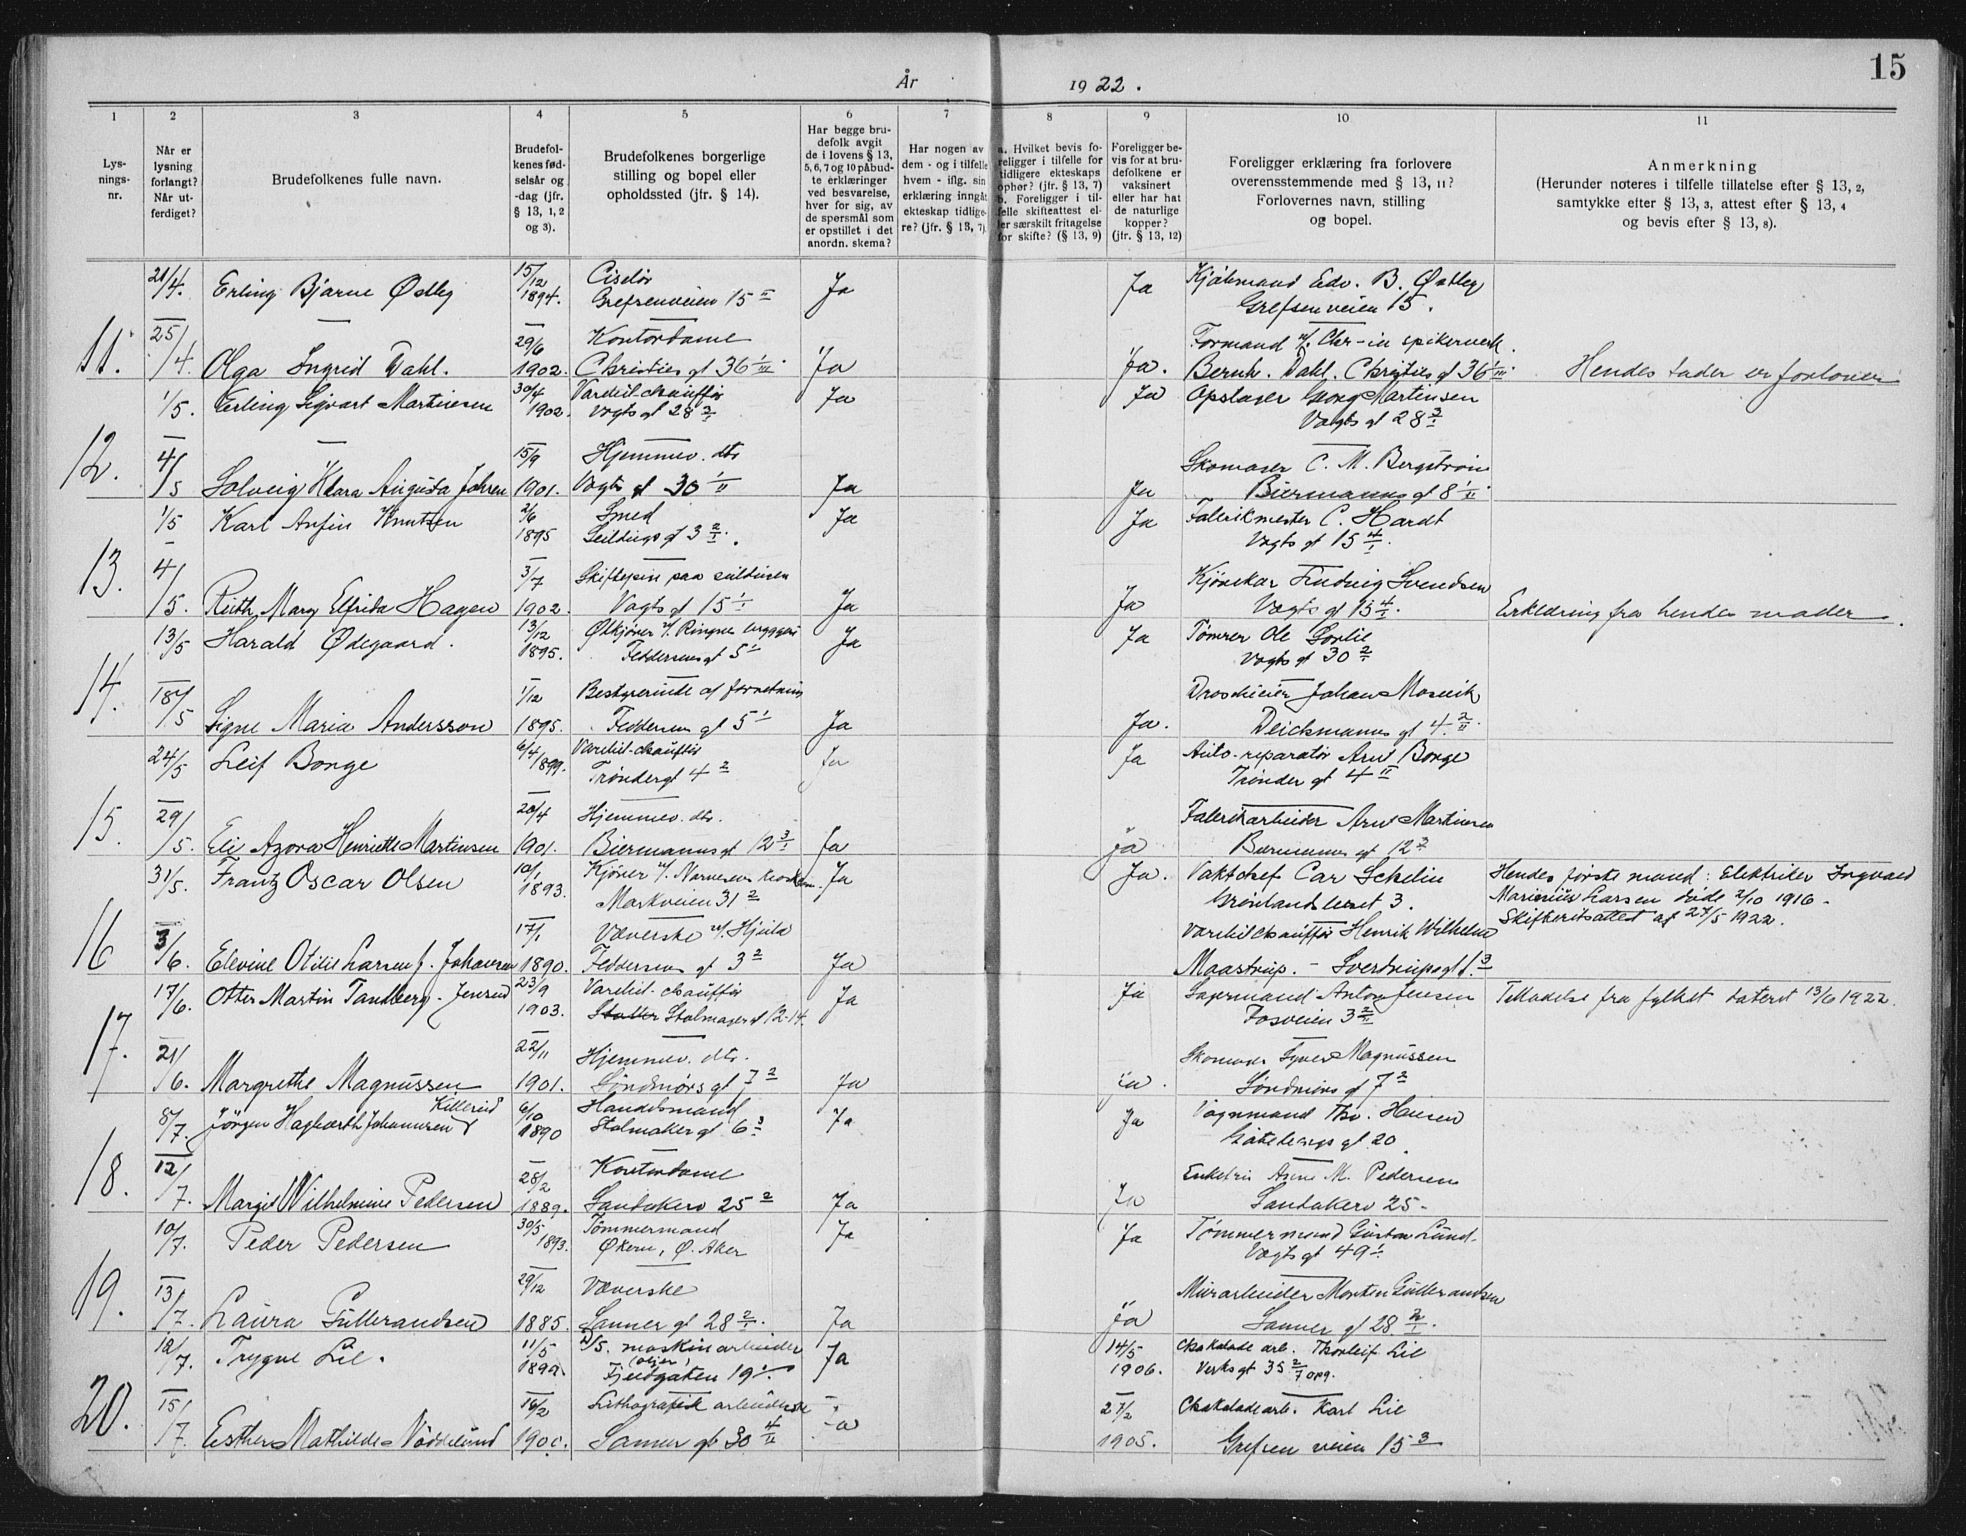 15
År 1922.
1 2 3 4 5 6 7 8 9 10 11
Lysningsnr.
Når er lysning forlangt? Når utferdiget?
Brudefolkenes fulle navn.
Brudefolkenes fødselsår og -dag (jfr. § 13, 1, 2 og 3).
Brudefolkenes borgerlige stilling og bopel eller opholdssted (jfr. § 14).
Har begge brudefolk avgit de i lovens § 13, 5, 6, 7 og 10 påbudte erklæringer ved besvarelse, hver for sig, av de spørsmål som er opstillet i det anordn. skema?
Har nogen av dem - og i tilfelle hvem - iflg. sin erklæring inngåt ekteskap tidligere? (jfr. § 13, 7).
a. Hvilket bevis foreligger i tilfelle for tidligere ekteskaps ophør? (jfr. § 13, 7) b. Foreligger i tilfelle skifteattest eller særskilt fritagelse for skifte? (§ 13, 9)
Foreligger bevis for at brudefolkene er vaksinert eller har hat de naturlige kopper? (jfr. § 13, 12)
Foreligger erklæring fra forlovere overensstemmende med § 13, 11? Forlovernes navn, stilling og bopel.
Anmerkning (Herunder noteres i tilfelle tillatelse efter § 13, 2, samtykke efter § 13, 3, attest efter § 13, 4 og bevis efter § 13, 8).
21/4. Erling Bjarne Østby 15/12 1894. Ciselør Grefsenveien 15 II Ja Ja Edv. B. Østby Grefsenveien 15.
11. 25/4. Olga Ingrid Dahl. 29/6 1902. Kontordame Christies gt 36 1/III Ja Ja. Formand v/. Chr-ia spikerverk. Bernh. Dahl. Christies gt 36 1/III. Hendes fader er forlover
1/5. Erling Sigvart Martinsen 30/4 1902. Varebil-chauffør Vogts gt 28 Ja Ja Georg Martensen Vogts gt 28
12. 4/5 Solveig Klara Augusta Johren 15/9 1901. Hjemmev. dtr Vogts gt 30 1/II Ja Ja Skomager C. M. Bergstrøm Biermanns gt 8 1/II.
1/5 Karl Anfin Knutsen 2/6 1895 Smed gt 3 2/I. Ja Ja Fabrikmester C. Hardt Vogts gt 15 4/I.
13. 4/5. Ruth Mary Elfrida Hagen 3/7 1902. paa Vogts gt 15 1/I Ja Ja Svendsen Vogts gt 15 4/I. Erklæring fra hendes moder.
13/5 Harald Ødegaard. 13/12 1895. Ølkjører v/. Ringnes bryggeri Feddersens gt 5 I Ja Ja Tømrer Ole Vogts gt 30
14. 18/5 Signe Maria Andersson 1/12 1895. Bestyrerinde af forretning Feddersens gt 5 I Ja Ja. Johan Deichmanns gt 4. 2/II.
24/5 Leif Bonge 6/4 1899. Varebil-chauffør Trøndergt 4 Ja Ja Auto-reparatør Arnt Bonge Trønder gt 4 II
15. 29/5. Eli Azora Henriette Martinsen 20/4 1901. Hjemmev. dtr. Biermanns gt 12 3/I Ja Ja Fabrikarbeider Arnt Martinsen Biermanns gt 12
31/5. Frantz Oscar Olsen 10/1 1893. Kjører v/. Narvesens Markveien 31 Ja Ja. Vaktchef Car Schelin Grønlandsleret 3. Hendes første mand: Elektriker Ingvald Marenius Larsen døde 2/10 1916 - Skifteretsattest af 27/5 1922.
16 3/6. Elevine Otilie Larsen f. Johansen 17/1 1890. Væverske v/. Hjula Feddersens gt 3 Ja Varebilchauffør Henrik Wilhelm Maastrup. - Sverdrupsgt
17/6. Otter Martin Tandberg-Jensrud 23/9 1903. Varebil-chauffør Stolmagergt 12-14. Ja Ja Lagermand Anton Jensen Fosveien 3 Tilladelse fra fylket dateret 13/6 1922.
17. 21/6. Margrethe Magnussen 22/11 1901. Hjemmev. dtr. Søndmørs gt 7 Ja ja. Skomager Magnussen Søndmørs gt 7
8/7. Jørgen Hagbarth Johannsen Killerud 6/10 1890 Handelsmand Stolmaker gt 6 Ja Ja Vognmand Thv. Hansen Gøteborgs gt 20
18. 12/7. Margit Wilhelmine Pedersen 28/2 1889. Kontordame Sandakerv 25 Ja Ja Enkefru M. Pedersen Sandakerv 25-
10/7. Peder Pedersen 30/5 1893. Tømmermand Økern, Ø. Aker Ja Ja Tømmermand Gustav Lund. Vogts gt 49 I
19. 13/7. Laura Gulbrandsen 29/12 1885. Væverske Sanner gt 28 2/I. Ja ja Murarbeider Morten Gulbrandsen Sanner gt 28
12/7. Trygve Lie. 11/5 maskinarbeider Fjeldgaten 19 Ja 14/5 1906. Chokolade arb. Thorleif Lie Verksgt 35 opg.
20. 15/7. Esther Mathilde 16/2 1900. Lithografisk arbeiderske Sanner gt 30 4/II 27/2 1905. Chokoladearb. Karl Lie Grefsenveien 15